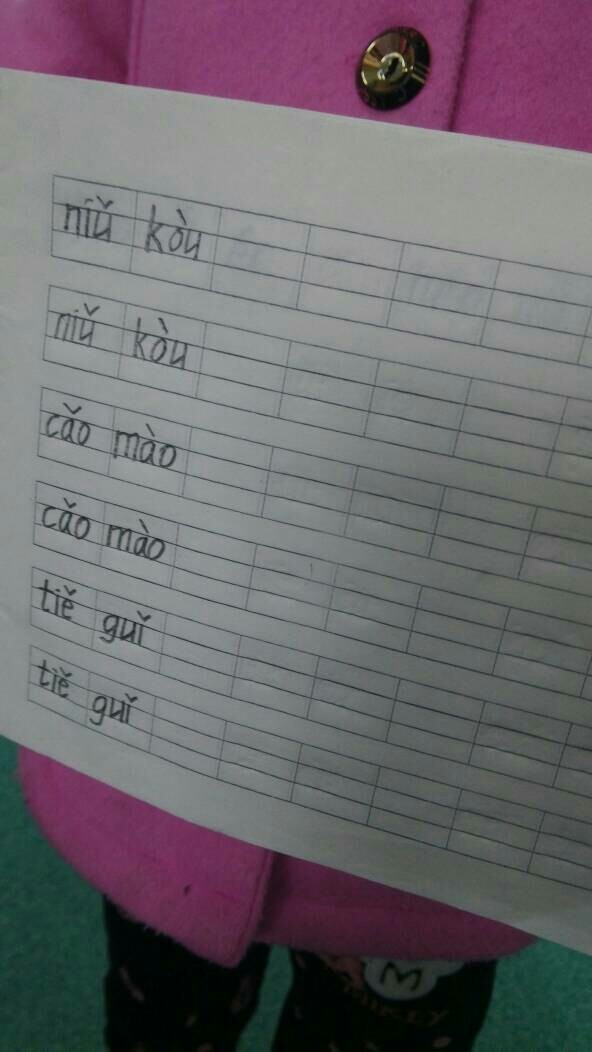 niǔ kòu
niǔ kòu
cǎo mào
cǎo mào
tiě guǐ
tiě guǐ
M